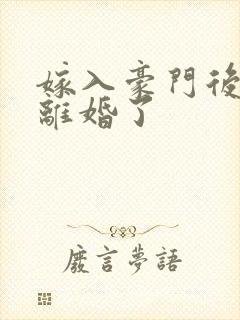 嫁入豪門後
離婚了
廢言夢語